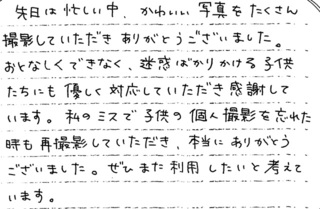 先日は忙しい中、かわいい写真をたくさん
撮影していただきありがとうございました。
おとなしくできなく、迷惑ばかりかける子供
たちにも優しく対応していただき感謝して
います。私のミスで子供の個人撮影を忘れた
時も再撮影していただき、本当にありがとう
ございました。ぜひまた利用したいと考えて
います。